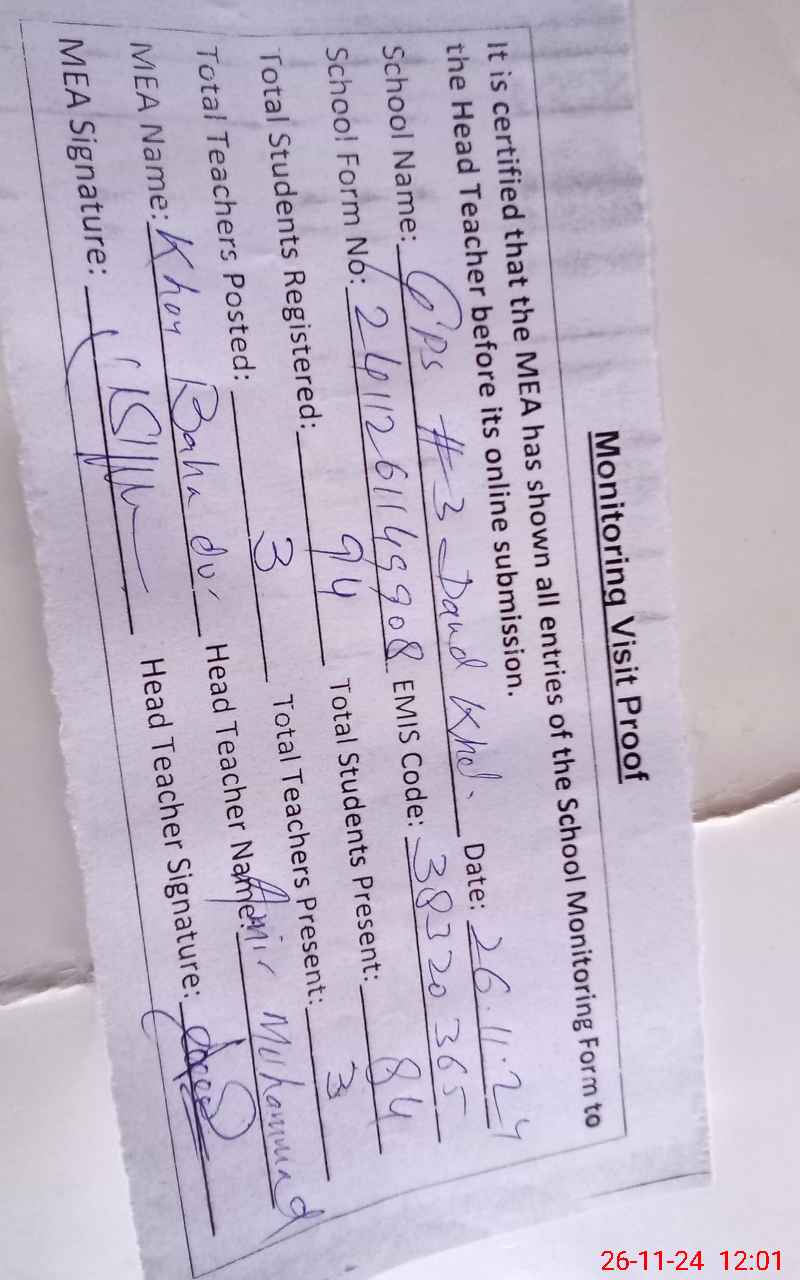 Monitoring Visit Proof
It is certified that the MEA has shown all entries of the School Monitoring Form to
the Head Teacher before its online submission.
School Name: GPS #3 Daud Khel. Date: 26.11.24
School Form No: EMIS Code: 38320365
Total Students Registered: 94 Total Students Present: 84
Total Teachers Posted: 3 Total Teachers Present: 3
MEA Name: Bahadur Head Teacher Name: Amir Muhammad
MEA Signature: Head Teacher Signature:
26-11-24 12:01